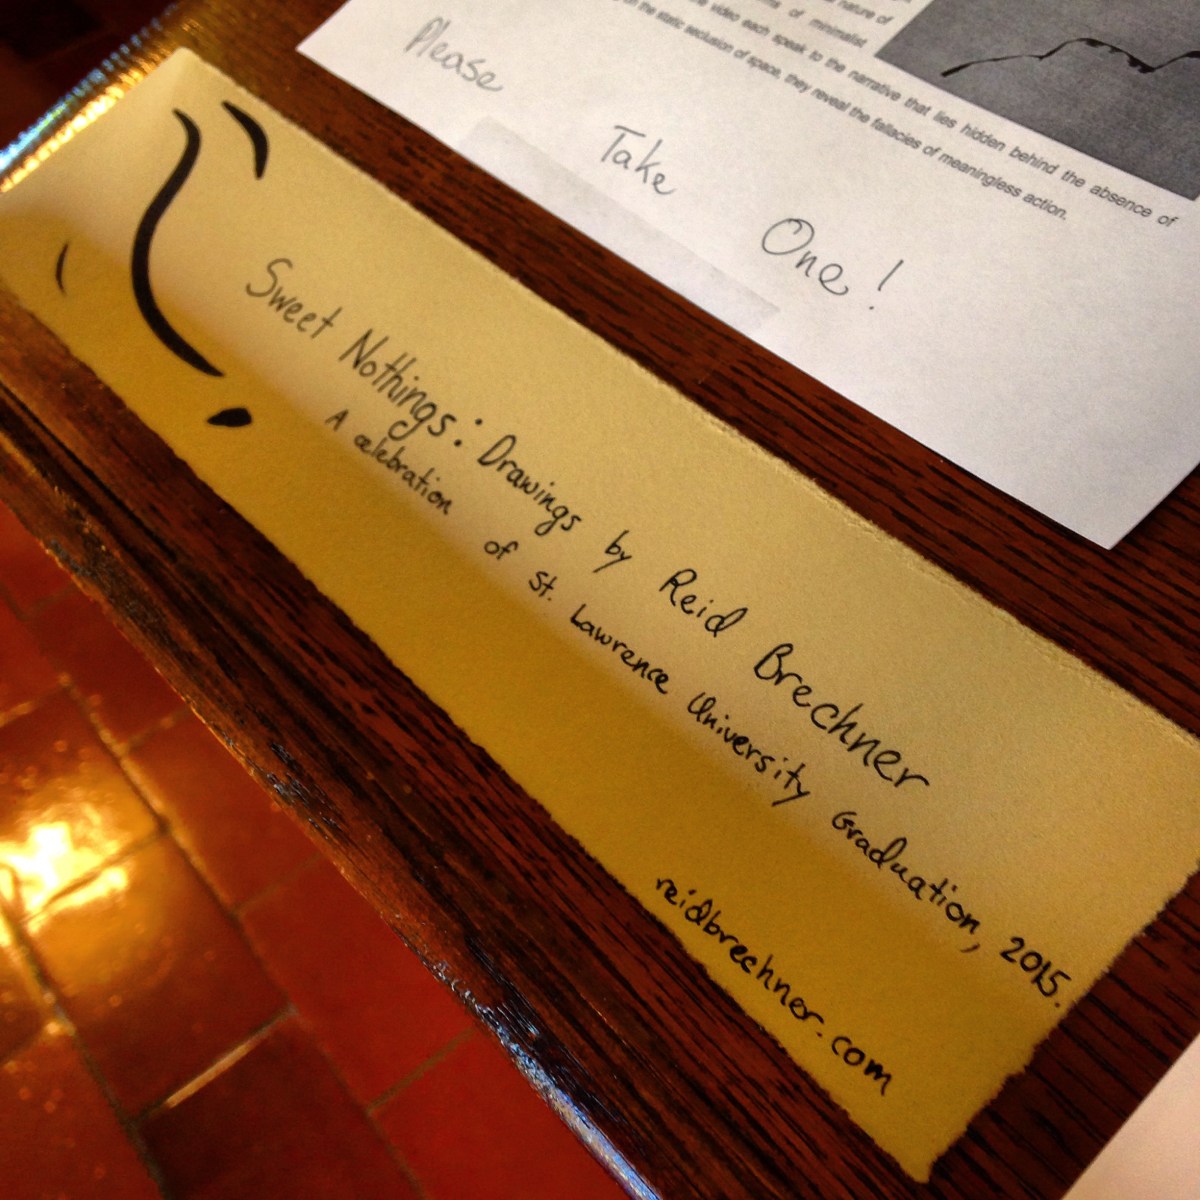 nature of
of minimalist
video each speak to the narrative that lies hidden behind the absence of
on the static seclusion of space, they reveal the fallacies of meaningless action.
Please Take One!
Sweet Nothings: Drawings by Reid Brechner
A celebration of St. Lawrence University Graduation, 2015.
reidbrechner.com